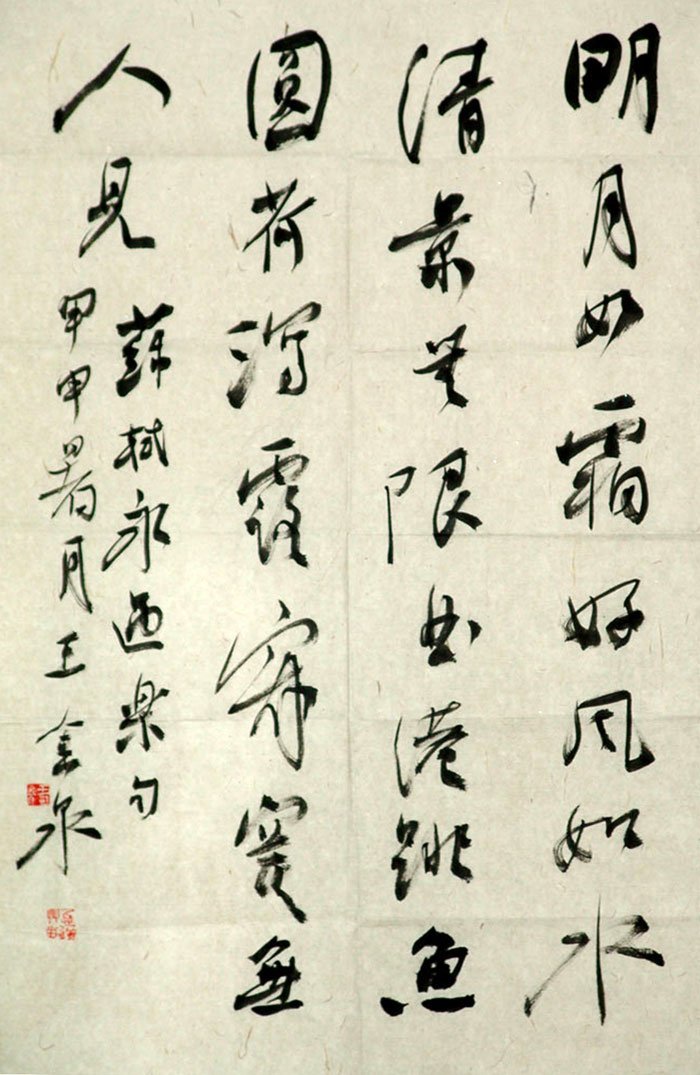 明月如霜好风如水
清景无限曲港跳鱼
圆荷泻露寂寞無
人見
蘇轼永遇樂句
甲申暑月王金泉